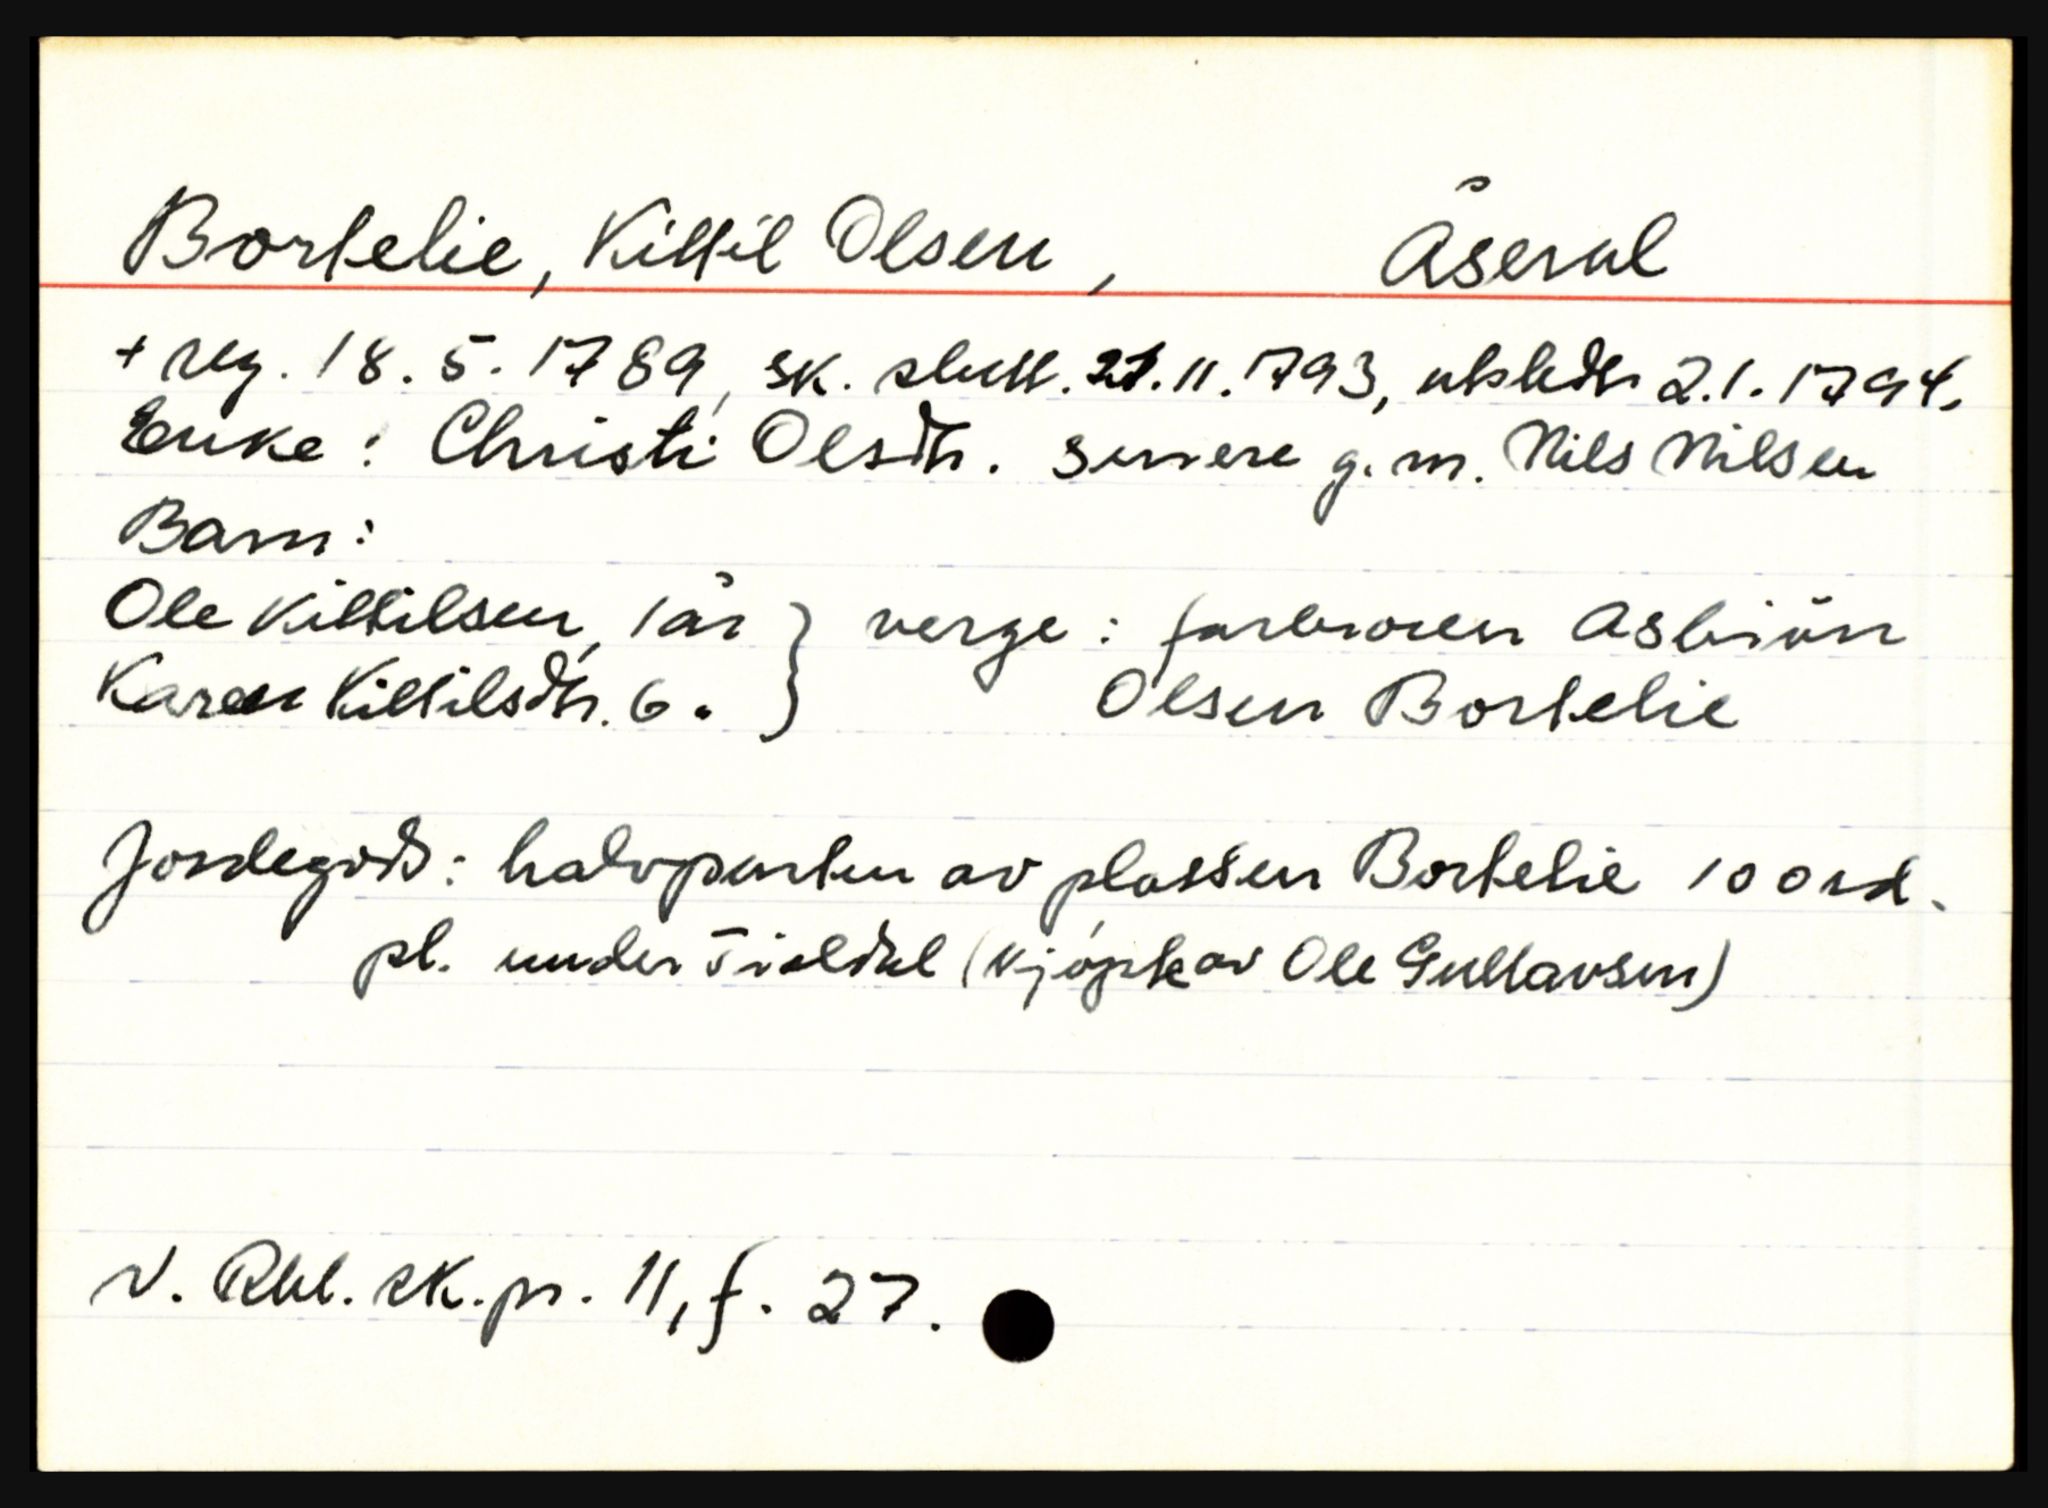 Bortelie, Kittil Olsen, Åseral
+ reg. 18.5.1789, sk. slutt. 21.11.1793, utstedt 2.1.1794.
Enke: Christi Olsdtr. senere g.m. Nils Nilsen
Barn:
Ole Kittilsen, 1 år } verge: farbroren Asbiörn
Karen Kittilsdtr. 6. } Olsen Bortelie
Jordegods: halvparten av plassen Bortelie 100 rd.
pl. under (kjöpt av Ole Gullavsen)
V. Rbl. sk.pr. 11, f. 27.